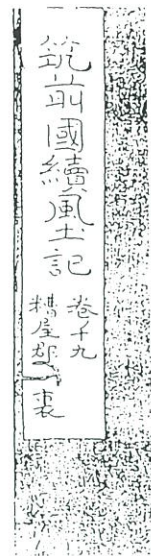 筑前國續風土記
卷十九
糟屋郡 裏